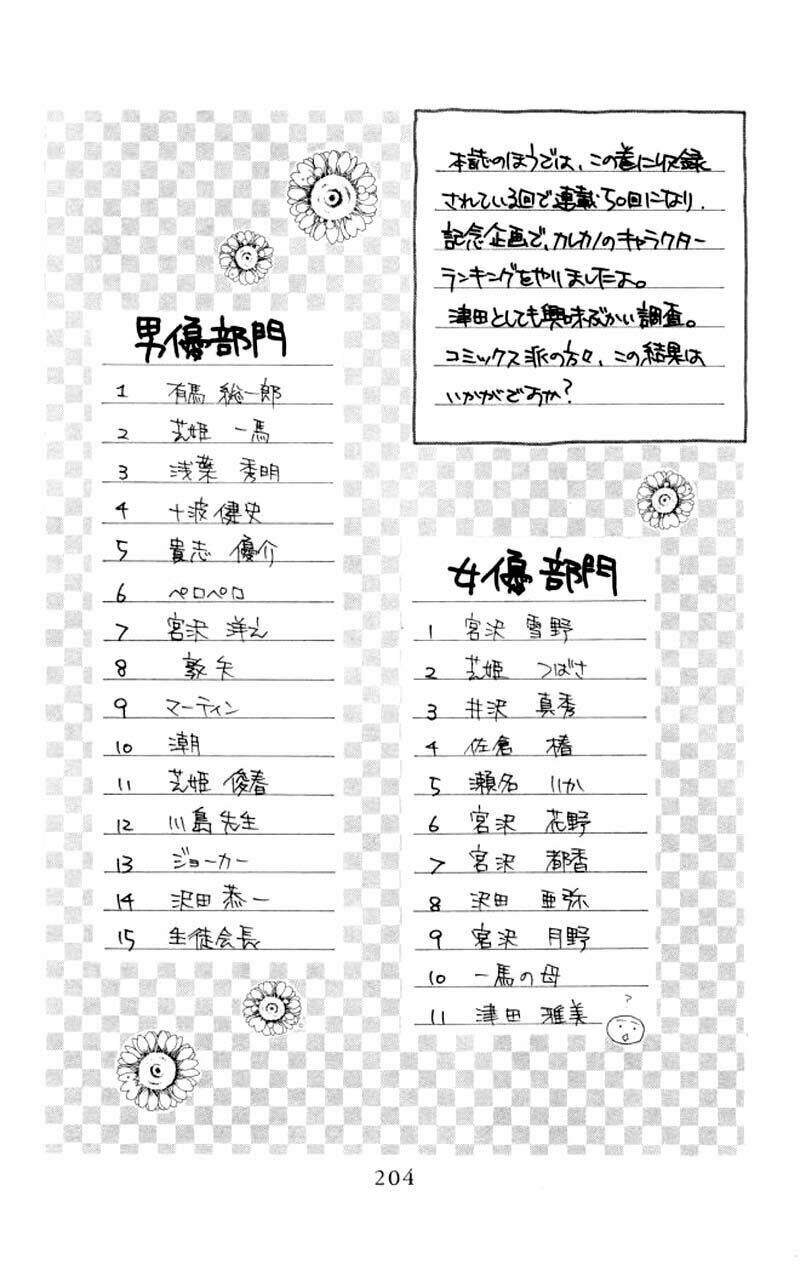 本誌のほうでは、この巻に収録
されている回で連載50回になり、
記念企画で、カレカノのキャラクター
ランキングをやりましたよ。
津田としても興味ぶかい調査。
コミックス派の方々、この結果は
いかがですか?
男優部門
1 有馬 総一郎
2 芝姫 一馬
3 浅葉 秀明
4 十波 健史
5 貴志 優介
6 ペロペロ
7 宮沢 洋之
8 敦矢
9 マーティン
10 潮
11 芝姫 俊春
12 川島先生
13 ジョーカー
14 沢田 恭一
15 生徒会長
女優部門
1 宮沢 雪野
2 芝姫 つばさ
3 井沢 真秀
4 佐倉 椿
5 瀬名 りか
6 宮沢 花野
7 宮沢 都香
8 沢田 亜弥
9 宮沢 月野
10 一馬の母
11 津田 雅美
?
204